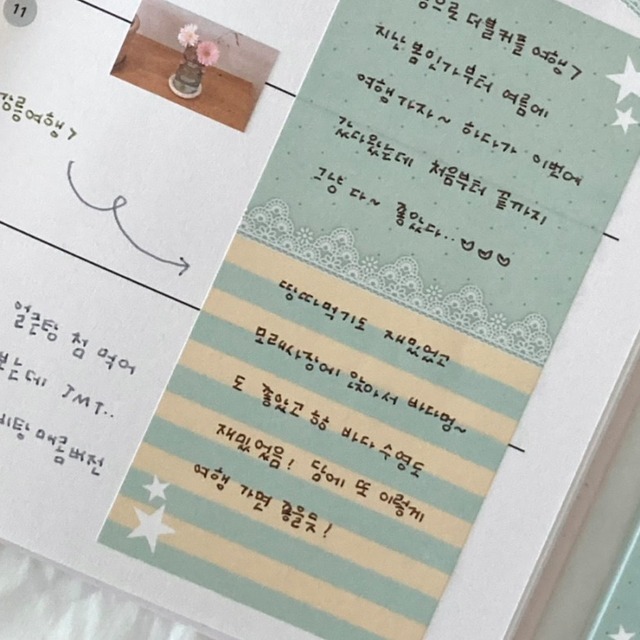 11
강릉여행 >
으로 더블커플 여행 >
지난 봄인가부터 여름에
여행가자~ 하다가 이번에
갔다왔는데 처음부터 끝까지
그냥 다~ 좋았다.. ♡♡♡
얼큰탕 첨 먹어
는데 JMT..
매콤버전
땅따먹기도 재밌었고
모래사장에 앉아서 바다멍~
도 좋았고 밤 바다수영도
재밌었음! 담에 또 이렇게
여행 가면 좋을듯!